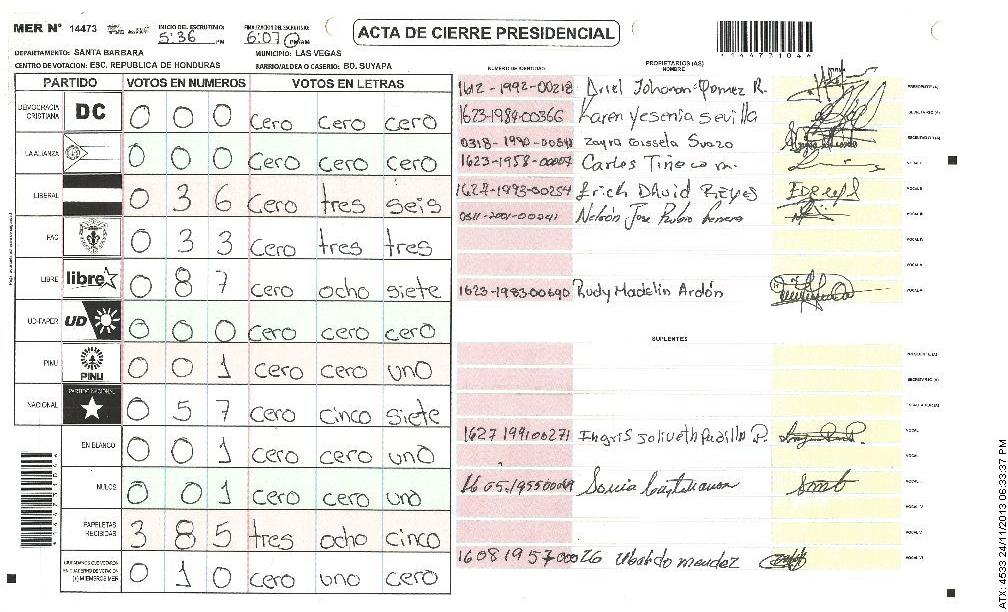 MER N° 14473 INICIO DEL ESCRUTINIO: 5:36 PM FINALIZACION DEL ESCRUTINIO: 6:07 PM/AM
ACTA DE CIERRE PRESIDENCIAL
DEPARTAMENTO: SANTA BARBARA MUNICIPIO: LAS VEGAS
CENTRO DE VOTACION: ESC. REPUBLICA DE HONDURAS BARRIO/ALDEA O CASERIO: BO. SUYAPA
PARTIDO VOTOS EN NUMEROS VOTOS EN LETRAS
DEMOCRACIA CRISTIANA DC 0 0 0 cero cero cero
LA ALIANZA 0 0 0 cero cero cero
LIBERAL 0 3 6 cero tres seis
PAC 0 3 3 cero tres tres
LIBRE libre 0 8 7 cero ocho siete
UD-FAPER UD 0 0 0 cero cero cero
PINU PINU 0 0 1 cero cero uno
NACIONAL PARTIDO NACIONAL 0 5 7 cero cinco siete
EN BLANCO 0 0 1 cero cero uno
NULOS 0 0 1 cero cero uno
PAPELETAS RECIBIDAS 3 8 5 tres ocho cinco
CIUDADANOS QUE VOTARON EN CUADERNO DE VOTACION (+) MIEMBROS MER 0 1 0 cero uno cero
NUMERO DE IDENTIDAD PROPIETARIOS (AS) NOMBRE FIRMA
1612-1992-00218 PRESIDENTE (A)
1623-1984-00366 Karen Yesenia Sevilla SECRETARIO (A)
0318-1990-00541 Suazo ESCRUTADOR (A)
1623-1958-00007 Carlos Tineco m.
1627-1993-00254 Erich David Reyes
Nelson Jose
1623-1983-00690 Rudy Madelin Ardón
SUPLENTES
PRESIDENTE (A)
SECRETARIO (A)
ESCRUTADOR (A)
1627 1991 00271 Ingris Joliveth Padilla P.
Sonia
1608 1957 00026 Ubaldo mendez
44473104
ATX: 4533 24/11/2013 06:33:37 PM